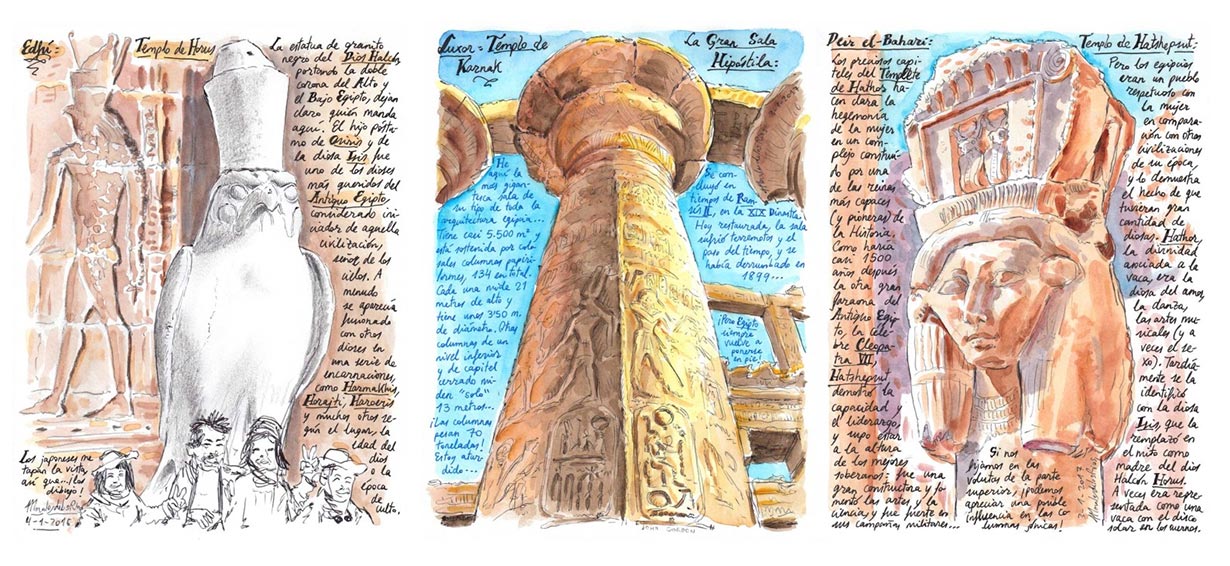 Edfú:
Templo de Horus
La estatua de granito
negro del Dios Halcón,
portando la doble
corona del Alto y
el Bajo Egipto, dejan
claro quién manda
aquí. El hijo póstu-
mo de Osiris y de
la diosa Isis fue
uno de los dioses
más queridos del
Antiguo Egipto,
considerado ini-
ciador de aquella
civilización,
señor de los
cielos. A
menudo
se aparecía
fusionado
con otros
dioses en
una serie de
encarnaciones,
como Harmakhis,
Horajti, Haroeris
y muchos otros se-
gún el lugar, la
edad del
dios
o la
época
de
culto.
Los japoneses me
tapan la vista,
así que... ¡los
dibujo!
4-1-2015
Luxor = Templo de
Karnak
La Gran Sala
Hipóstila:
He
aquí la
más gigan-
tesca sala de
su tipo de toda la
arquitectura egipcia...
Tiene casi 5.500 m² y
está sostenida por colo-
sales columnas papiri-
formes, 134 en total.
Cada una mide 21
metros de alto y
tiene unos 3'50 m.
de diámetro. Otras
columnas de un
nivel inferior
y de capitel
cerrado mi-
den "solo"
13 metros...
¡Las columnas
pesan 70
toneladas!
Estoy atur-
dido...
Se con-
cluyó en
tiempos de Ram-
sés II, en la XIX Dinastía.
Hoy restaurada, la sala
sufrió terremotos y el
paso del tiempo, y se
había derrumbado en
1899...
¡Pero Egipto
siempre
vuelve a
ponerse
en pie!
JOHN GORDON
Deir el-Bahari:
Templo de Hatshepsut:
Los preciosos capi-
teles del Templete
de Hathor ha-
cen clara la
hegemonía
de la mujer
en un com-
plejo construi-
do por una
de las reinas
más capaces
(y pioneras) de
la Historia.
Como haría
casi 1500
años después
la otra gran
faraona del
Antiguo Egip-
to, la céle-
bre Cleopa-
tra VII,
Hatshepsut
demostró la
capacidad y
el liderazgo
y supo estar
a la altura
de los mejores
soberanos: fue una
gran constructora y fo-
mentó las artes y la
ciencia, y fue fuerte en
sus campañas militares...
Pero los egipcios
eran un pueblo
respetuoso con
la mujer
en compara-
ción con otras
civilizaciones
de su época,
y lo demuestra
el hecho de que
tuvieran gran
cantidad de
diosas. Hathor,
la divinidad
asociada a la
vaca, era la
diosa del amor,
la danza,
las artes mu-
sicales (y a
veces el se-
xo). Tardía-
mente se la
identificó
con la diosa
Isis, que la
remplazó en
el mito como
madre del dios
Halcón Horus.
A veces era repre-
sentada como una
vaca con el disco
solar en los cuernos.
Si nos
fijamos en las
volutas de la parte
superior, ¡podemos
apreciar una posible
influencia en las co-
lumnas jónicas!